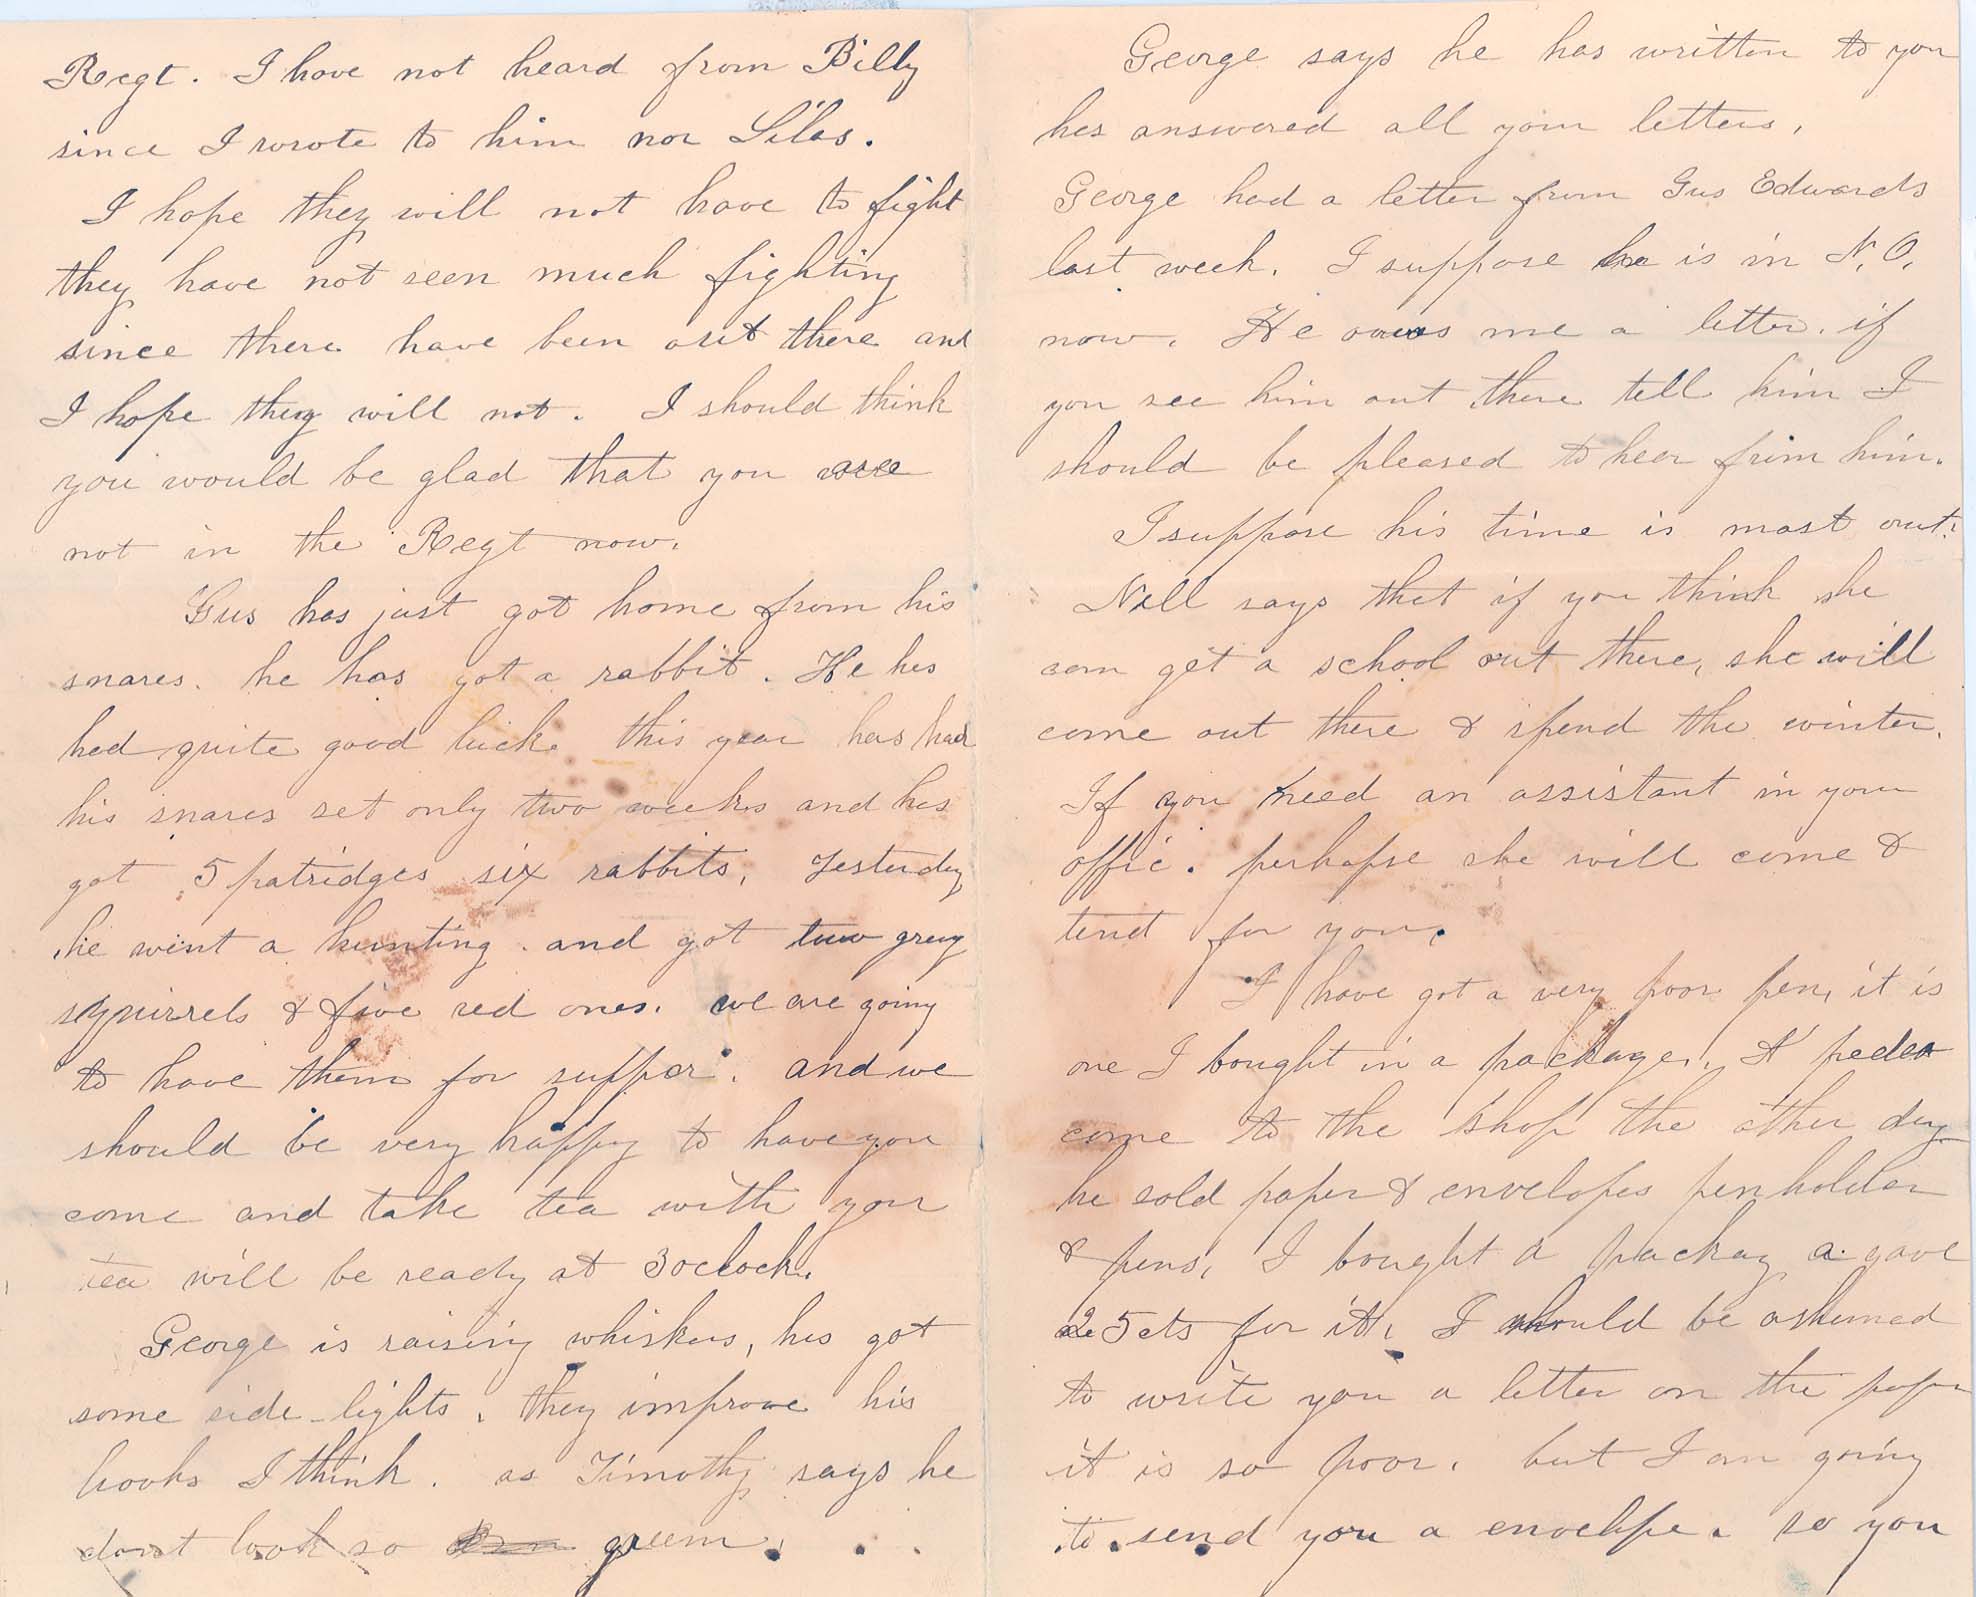 Regt. I have not heard from Billy
since I wrote to him nor Silas.
I hope they will not have to fight
they have not seen much fighting
since there have been out there and
I hope they will not. I should think
you would be glad that you are
not in the Regt now.
Gus has just got home from his
snares. he has got a rabbit. He has
had quite good luck this year has had
his snares set only two weeks and has
got 5 patridges six rabbits, Yesterday
he went a hunting. and got two grey
squirrels & five red ones. we are going
to have them for supper. and we
should be very happy to have you
come and take tea with you
tea will be ready at 3 oclock.
George is raising whiskers, has got
some side-lights, they improve his
looks I think. as Timothy says he
dont look so green.
George says he has written to you
has answered all your letters,
George had a letter from Gus Edwards
last week. I suppose he is in N.O.
now. He owes me a letter. if
you see him out there tell him I
should be pleased to hear frim him.
I suppose his time is most out.
Nell says that if you think she
can get a school out there, she will
come out there & spend the winter.
If you need an assistant in your
offic. perhapse she will come &
tend for you.
I have got a very poor pen, it is
one I bought in a package. A pedler
come to the shop the other day
he sold paper & envelopes penholder
& pens, I bought a packag a gave
25 cts for it, I should be ashamed
to write you a letter on the paper
it is so poor, but I am going
to send you a envelope. so you